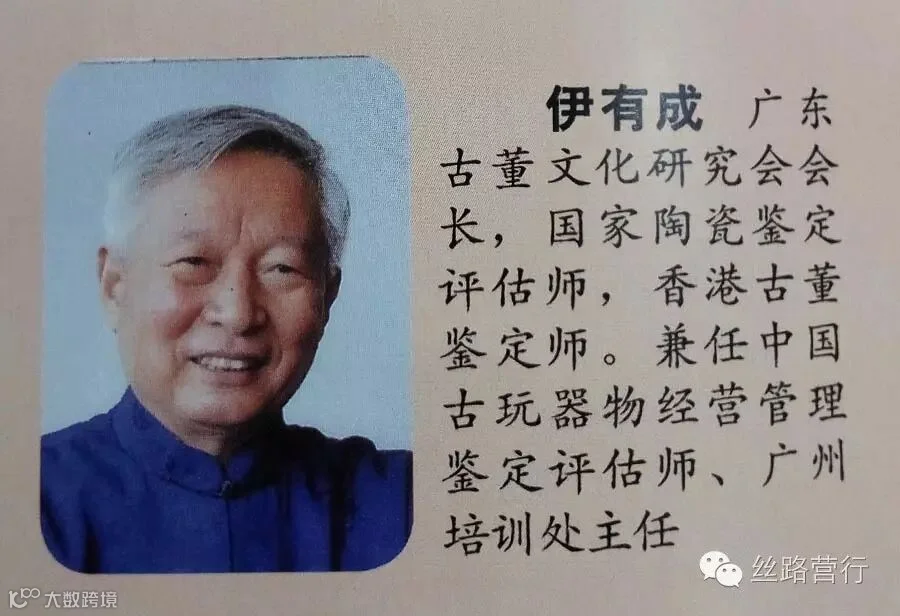 伊有成 广东
古董文化研究会会
长，国家陶瓷鉴定
评估师，香港古董
鉴定师。兼任中国
古玩器物经营管理
鉴定评估师、广州
培训处主任
丝路营行
大数跨境